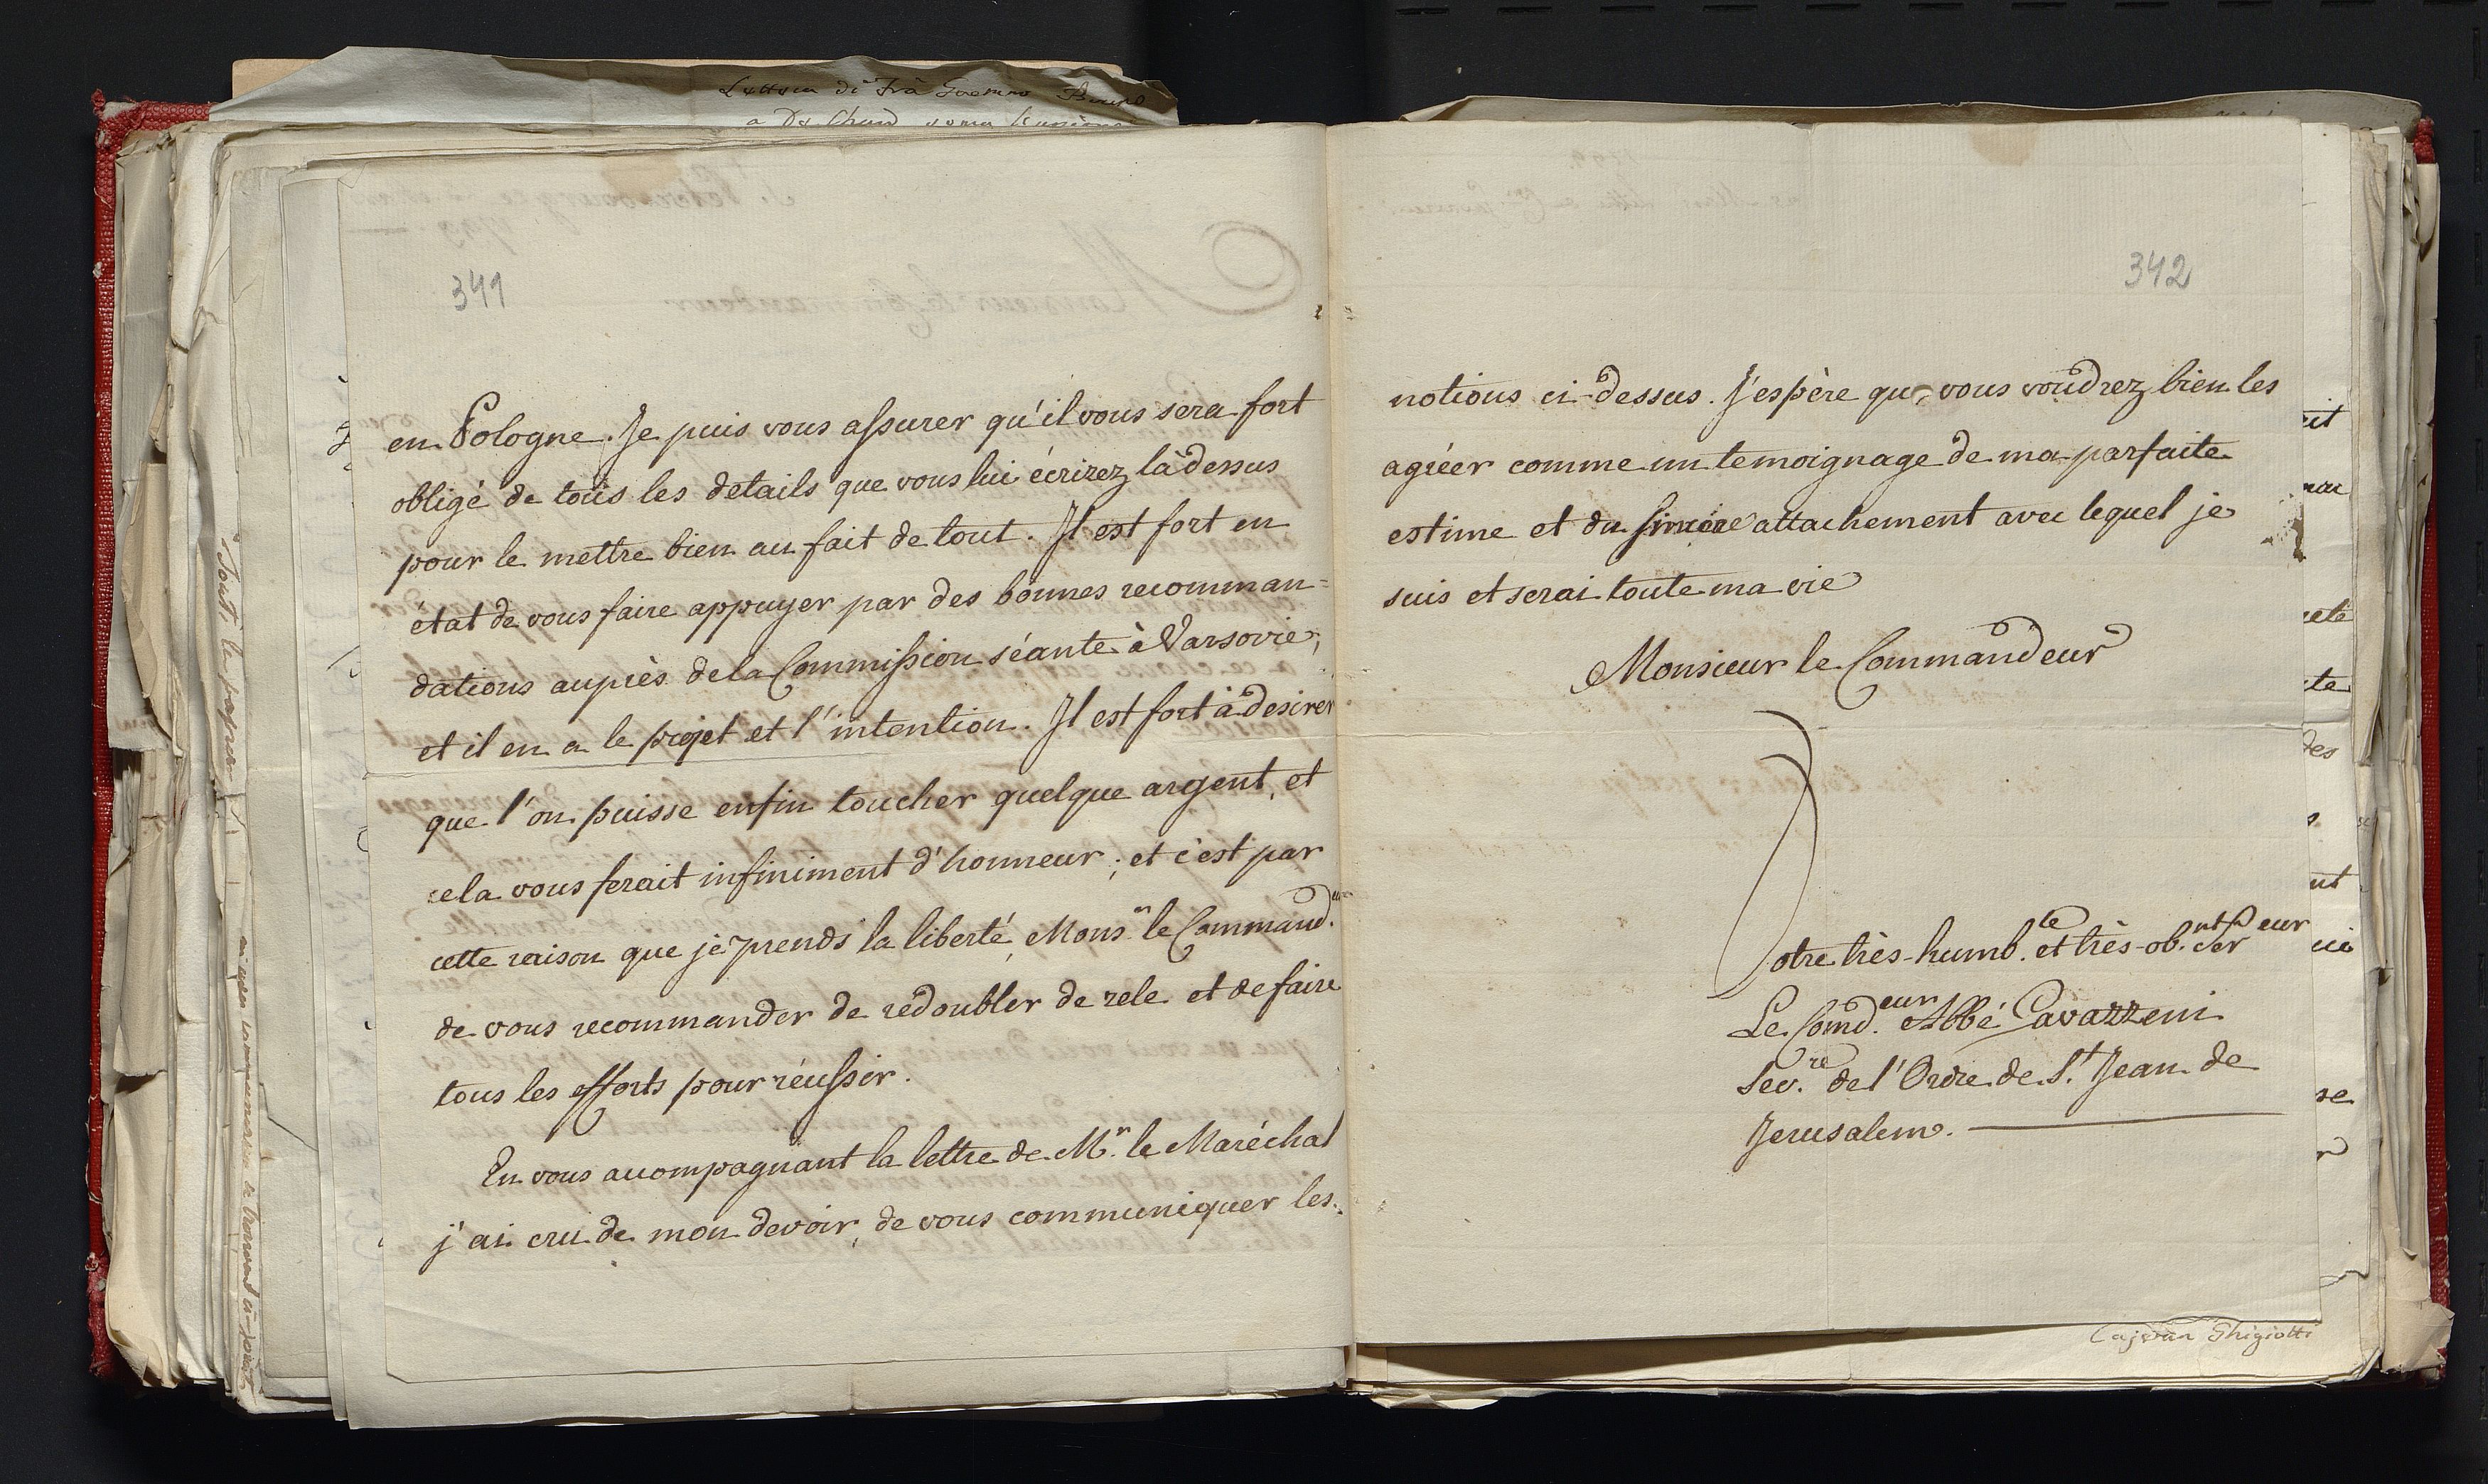 341
en Pologne. Je puis vous assurer qu'il vous sera fort
obligé de tous les details que vous lui écrirez là dessus
pour le mettre bien au fait de tout. Il est fort en
état de vous faire appuyer par des bonnes recomman=
dations auprès de la Commission séante à Varsovie,
et il en a le projet et l'intention. Il est fort à desirer
que l'on puisse enfin toucher quelque argent, et
cela vous ferait infiniment d'honneur; et c'est par
cette raison que je prends la liberté, Mons.r le Command.eur
de vous recommander de redoubler de zele et de faire
tous les efforts pour réussir.
En vous accompagnant la lettre de M.r le Maréchal
j'ai cru de mon devoir, de vous communiquer les
342
notions ci-dessus. J'espère que vous voudrez bien les
agréer comme un temoignage de ma parfaite
estime et du sincère attachement avec lequel je
suis et serai toute ma vie
Monsieur le Commandeur
Votre très-humb.le et très-ob.nt Ser eur
Le Comd.eur Abbé Cavazzeni
Sec.re de l'Ordre de S.t Jean de
Jerusalem.
Cajetan Ghigiotti